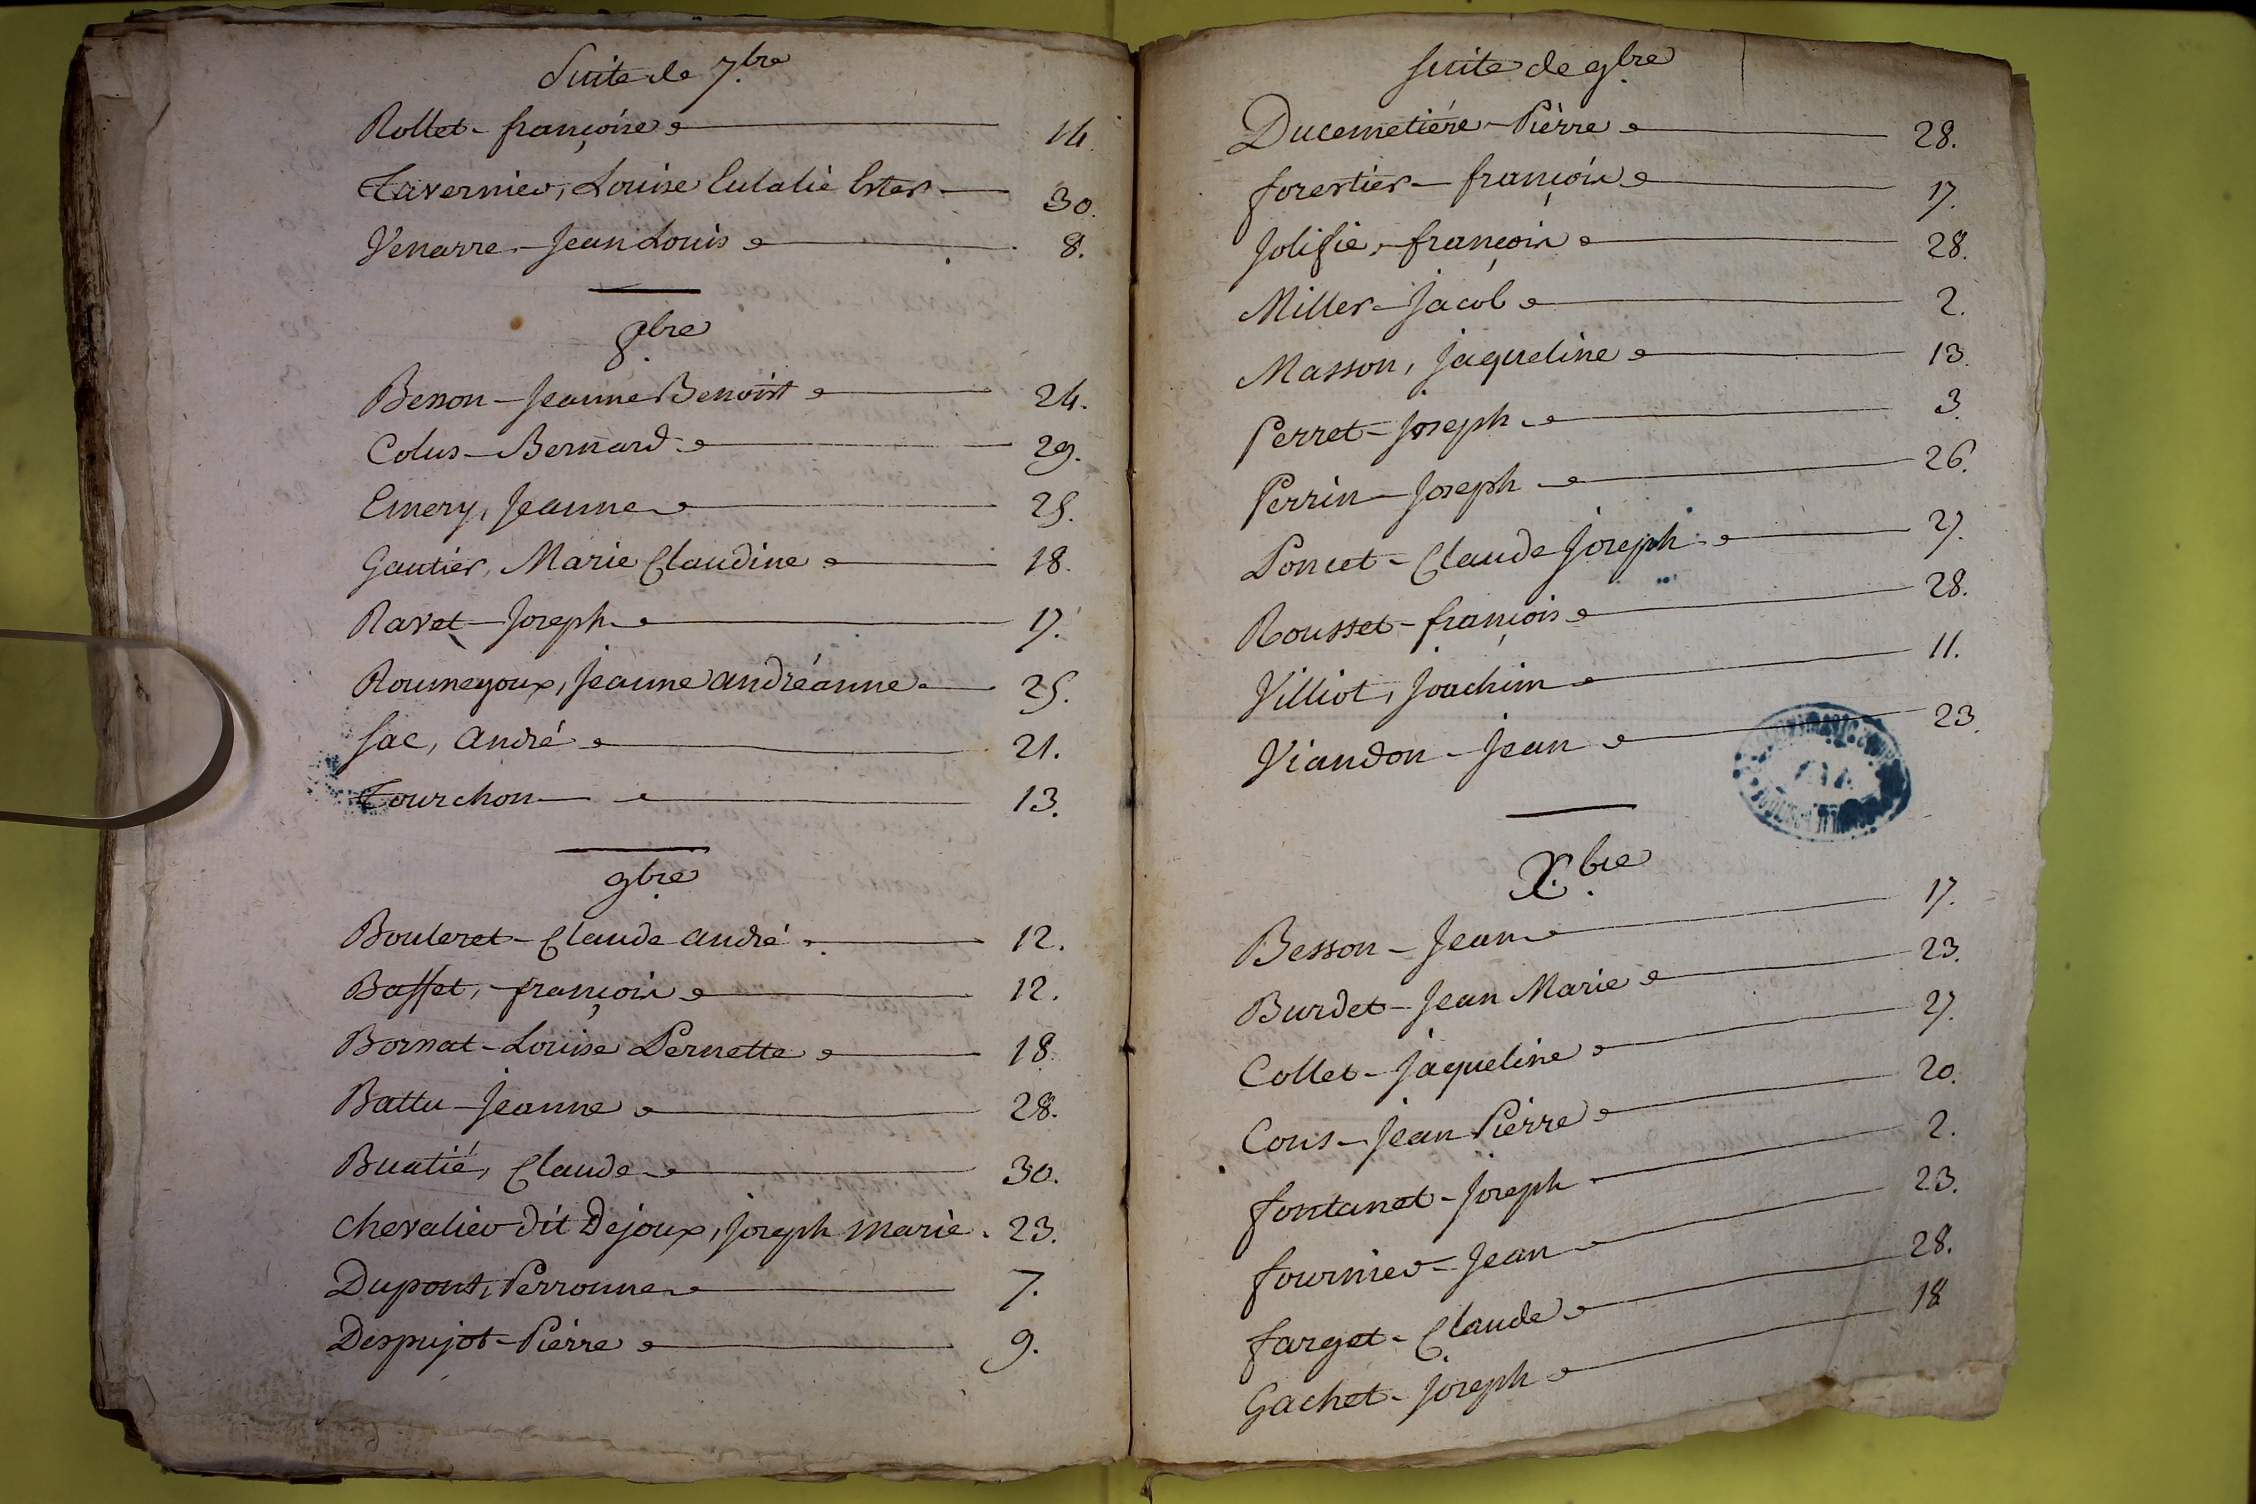 Suite de 7.bre
Rollet - françoise 14.
Tavernier, Louise Eulalie Ester 30.
Venarre - Jean Louis 8.
8.bre
Besson - Jeanne Benoist 24.
Colus - Bernard 29.
Emery, Jeanne 25.
Gautier, Marie Claudine 18.
Ravet - Joseph 17.
Roumeyoux, Jeanne andréanne 25.
Sac, andré 21.
Tourchon 13.
9.bre
Bouleret - Claude andré 12.
Baffet, françois 12.
Bornat - Louise Pernette 18.
Battu - Jeanne 28.
Buatié, Claude 30.
Chevalier dit Dejoux, Joseph marie 23.
Dupont, Perronne 7.
Despujot - Piérre 9.
Suite de 9.bre
Ducemetiére - Piérre 28.
forestier - françois 17.
Jolifie, françois 28.
Miller - Jacob 2.
Masson, Jaqueline 13.
Perret - Joseph 3.
Perrin - Joseph 26.
Poncet - Claude Joseph 27.
Rousset - françois 28.
Villiot, Joachim 11.
Viandon - Jean 23.
X.bre
Besson - Jean 17.
Burdet - Jean Marie 23.
Collet - Jaqueline 27.
Cous - Jean Piérre 20.
fontanet - Joseph 2.
fournier - Jean 23.
farget - Claude 28.
Gachet - Joseph 18